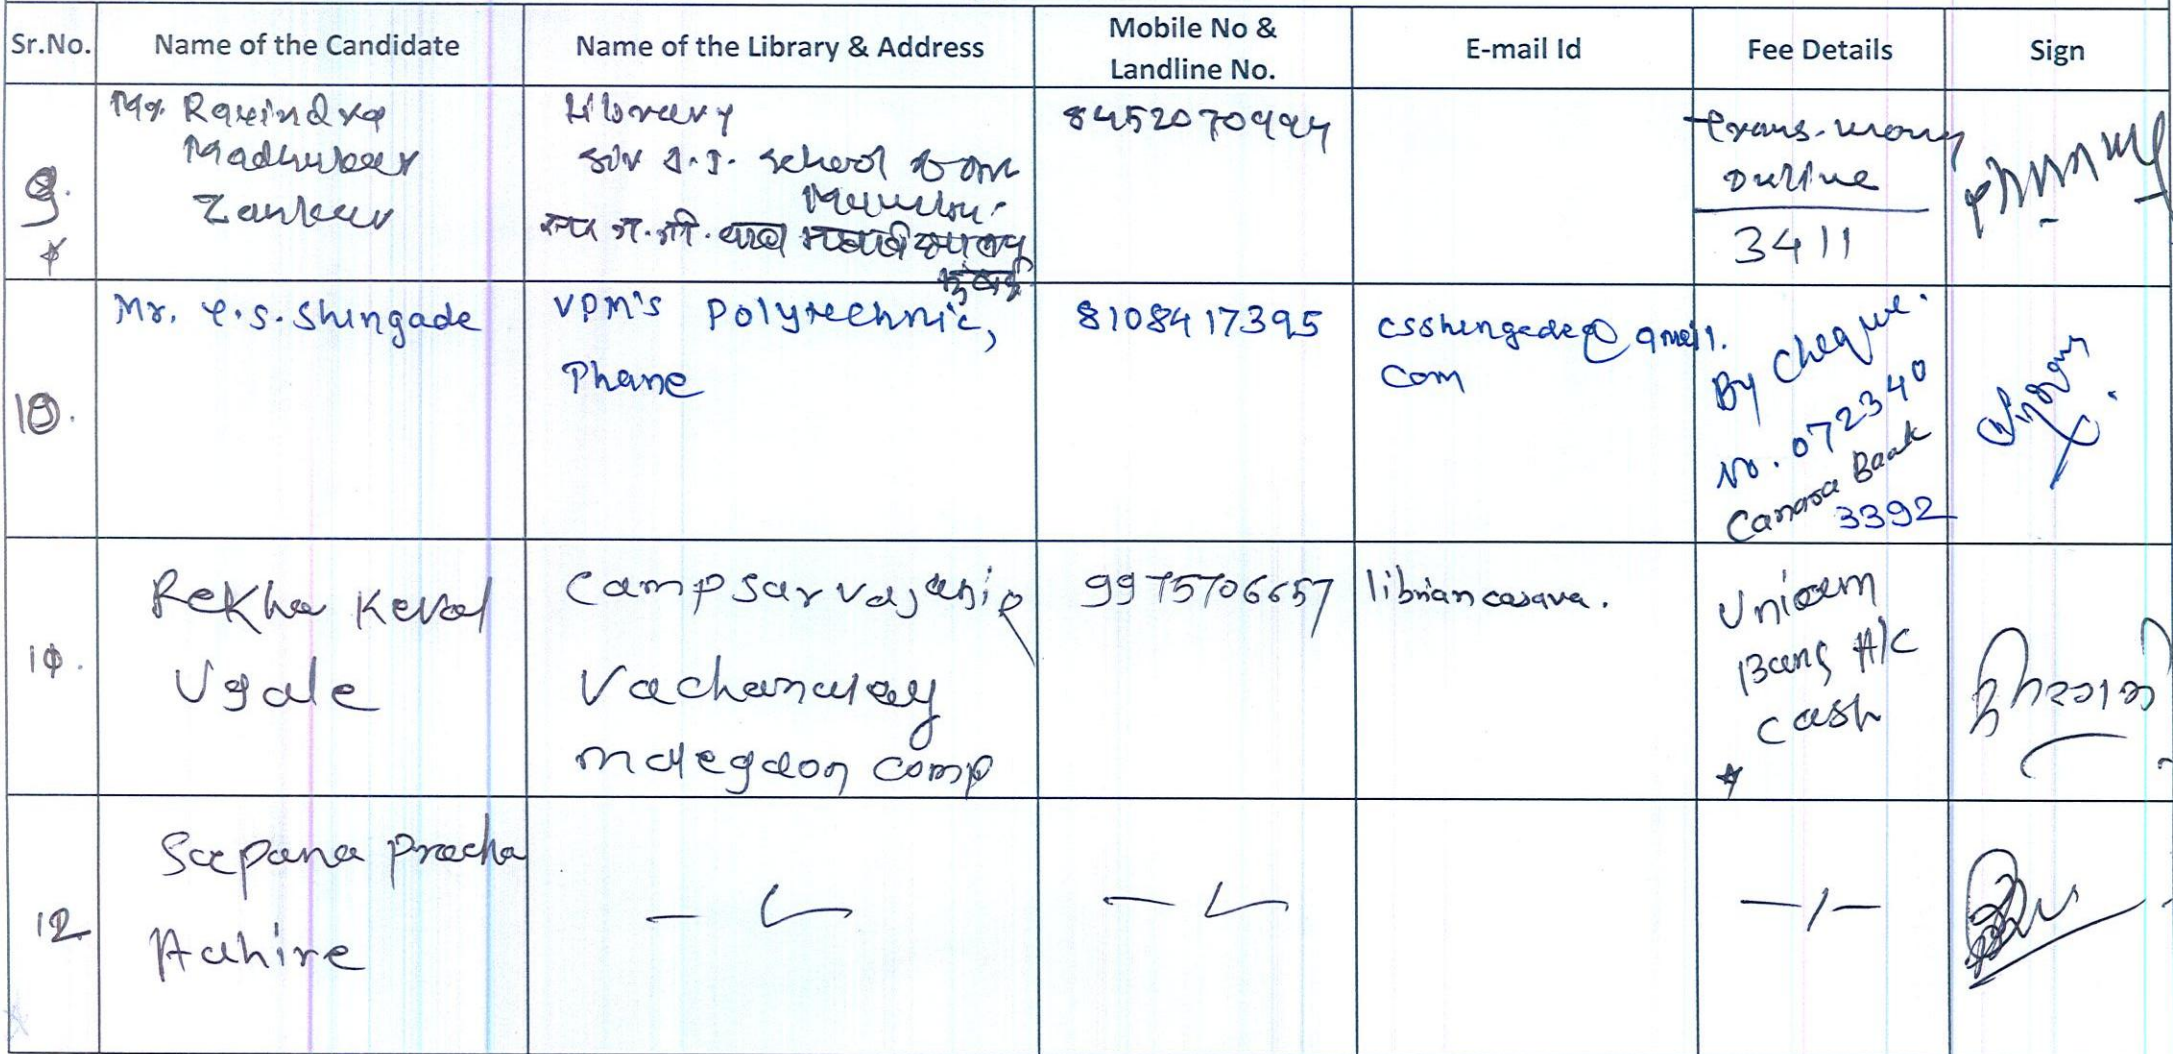 Sr.No. Name of the Candidate Name of the Library & Address Mobile No & Landline No. E-mail Id Fee Details Sign
9.
Mr. Ravindra
Madhukar
Zankar
Library
Sir J.J. School
8452070494
online
3411
10.
Mr. C.S. Shingade
VPM's Polytechnic,
Thane
8108417395
csshingade@gmail.
com
By Cheque.
No. 072340
Canara Bank
3392
11.
Rekha Keval
Ugale
Camp Sarvajanic
Vachanalay
malegaon camp
9975706657
librian casava.
A/c
cash
12
Sapana Pracha
Aahire